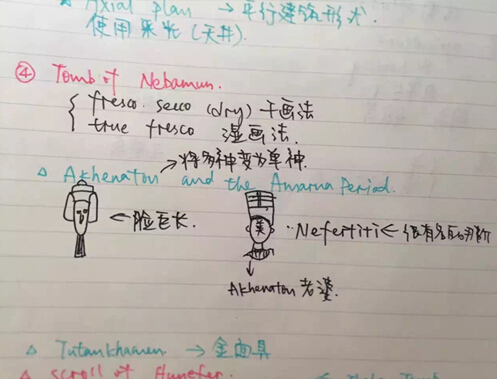 Axial plan → 平行建筑形式.
使用采光(天井).
④ Tomb of Nebamun.
fresco secco (dry) 干画法
true fresco 湿画法.
→将多神变为单神.
△ Akhenaton and the Amarna Period.
←脸巨长
Nefertiti ←很有名
↓
Akhenaton 老婆.
△ Tutankhamen → 金面具
△ scroll of Hunefer.